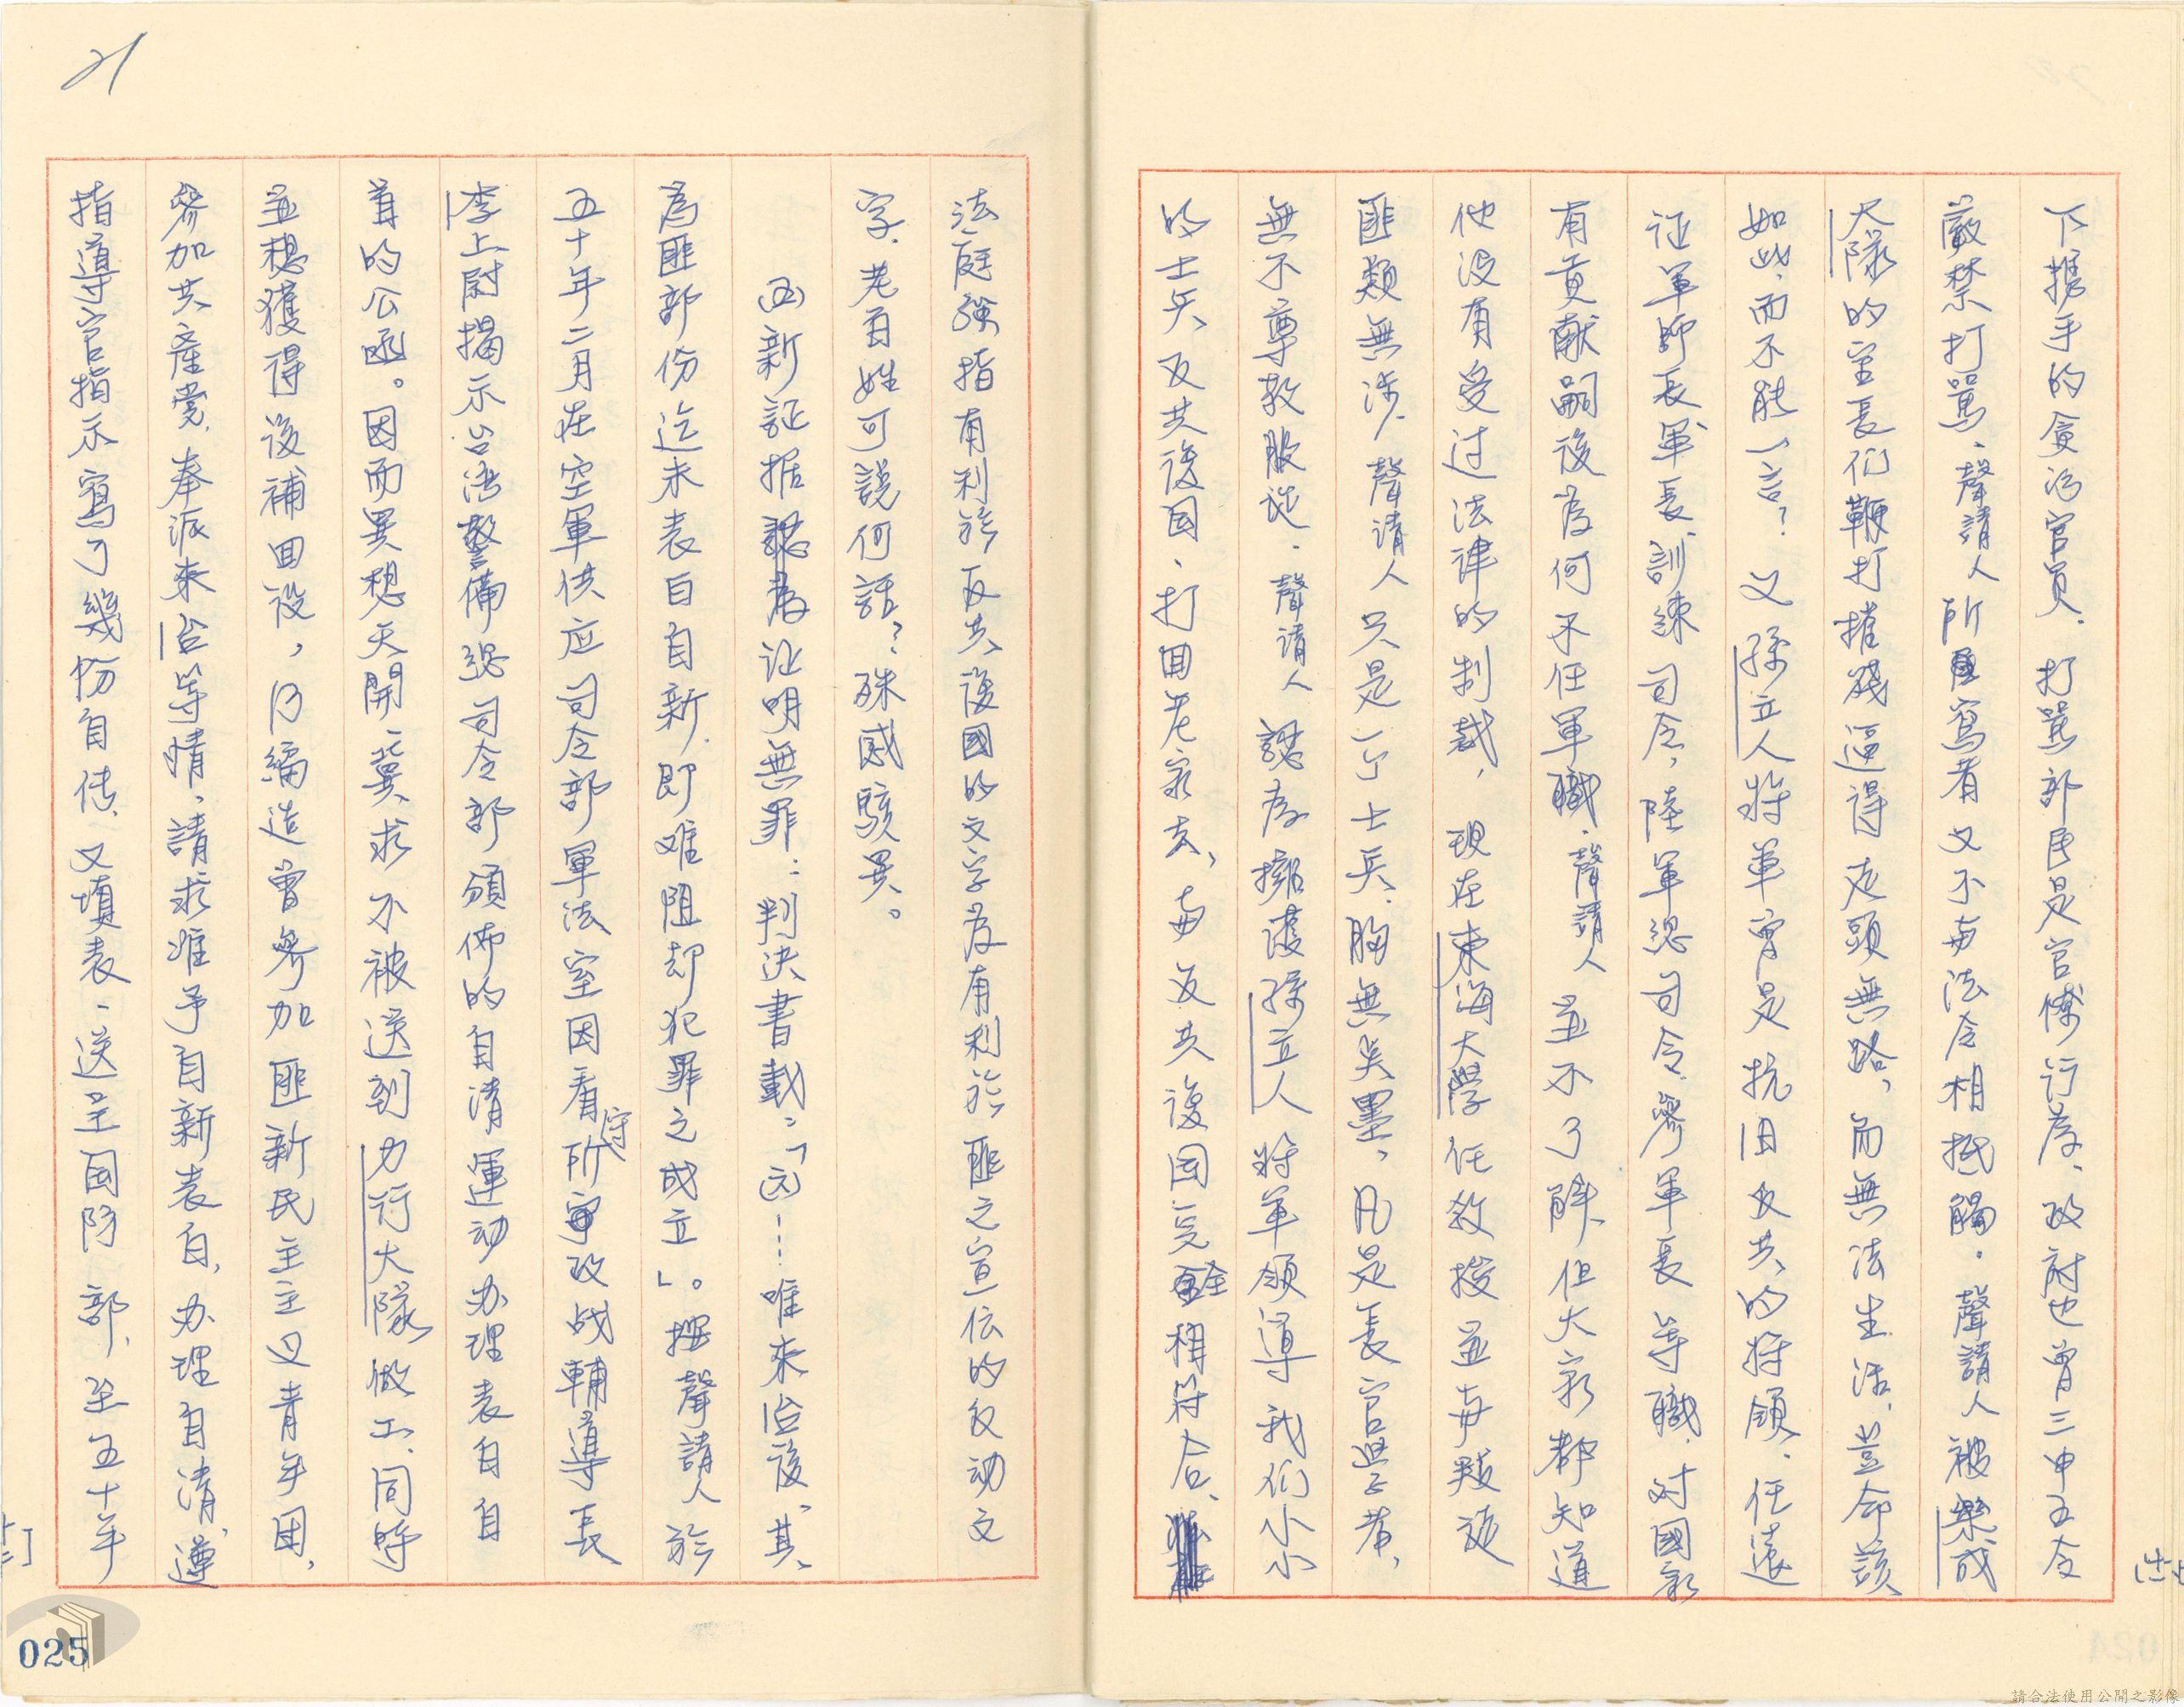 下携手的貪污官員、打罵部民是官僚行為、政府也曾三申五令
嚴禁打罵、聲請人所寫者又不与法令相抵觸。聲請人被樂成
大隊的官長们鞭打摧殘逼得走頭無路、而無法生活、豈命該
如此、而不能一言？又孫立人将军曾是抗日反共的将領、任遠
证軍師長、軍長、訓練司令、陸軍總司令、參軍長等職、対國家
有貢献嗣後為何不任軍職、聲請人並不了解、但大家都知道
他没有受过法律的制裁、現在東海大學任教授並与叛徒
匪類無涉、聲請人只是一个士兵、胸無点墨、凡是長官學者、
無不尊敬服從、聲請人認為擁護孫立人将军領導我们小小
的士兵反共復国、打回老家去、与反共復国完全相符合、
法庭強指有利於反共復國的文字為有利於匪之宣伝的反动文
字、老百姓可說何話？殊感駭異。
㈣新証据認為证明無罪：判決書載：「㈣……唯來台後、其
為匪部份迄未表白自新、即难阻却犯罪之成立」。按聲請人於
五十年二月在空軍供应司令部軍法室因看守所政战輔導長
李上尉揭示台湾警備總司令部頒佈的自清運动办理表白自
首的公函。因而異想天開、冀求不被送到力行大隊做工、同時
並想獲得後補回役，乃編造曾參加匪新民主主义青年団、
參加共產党、奉派來台等情、請求准予自新表白、办理自清、遵
指導官指示寫了幾份自传、又填表、送呈国防部、至五十年
21
025
請合法使用公開之影像